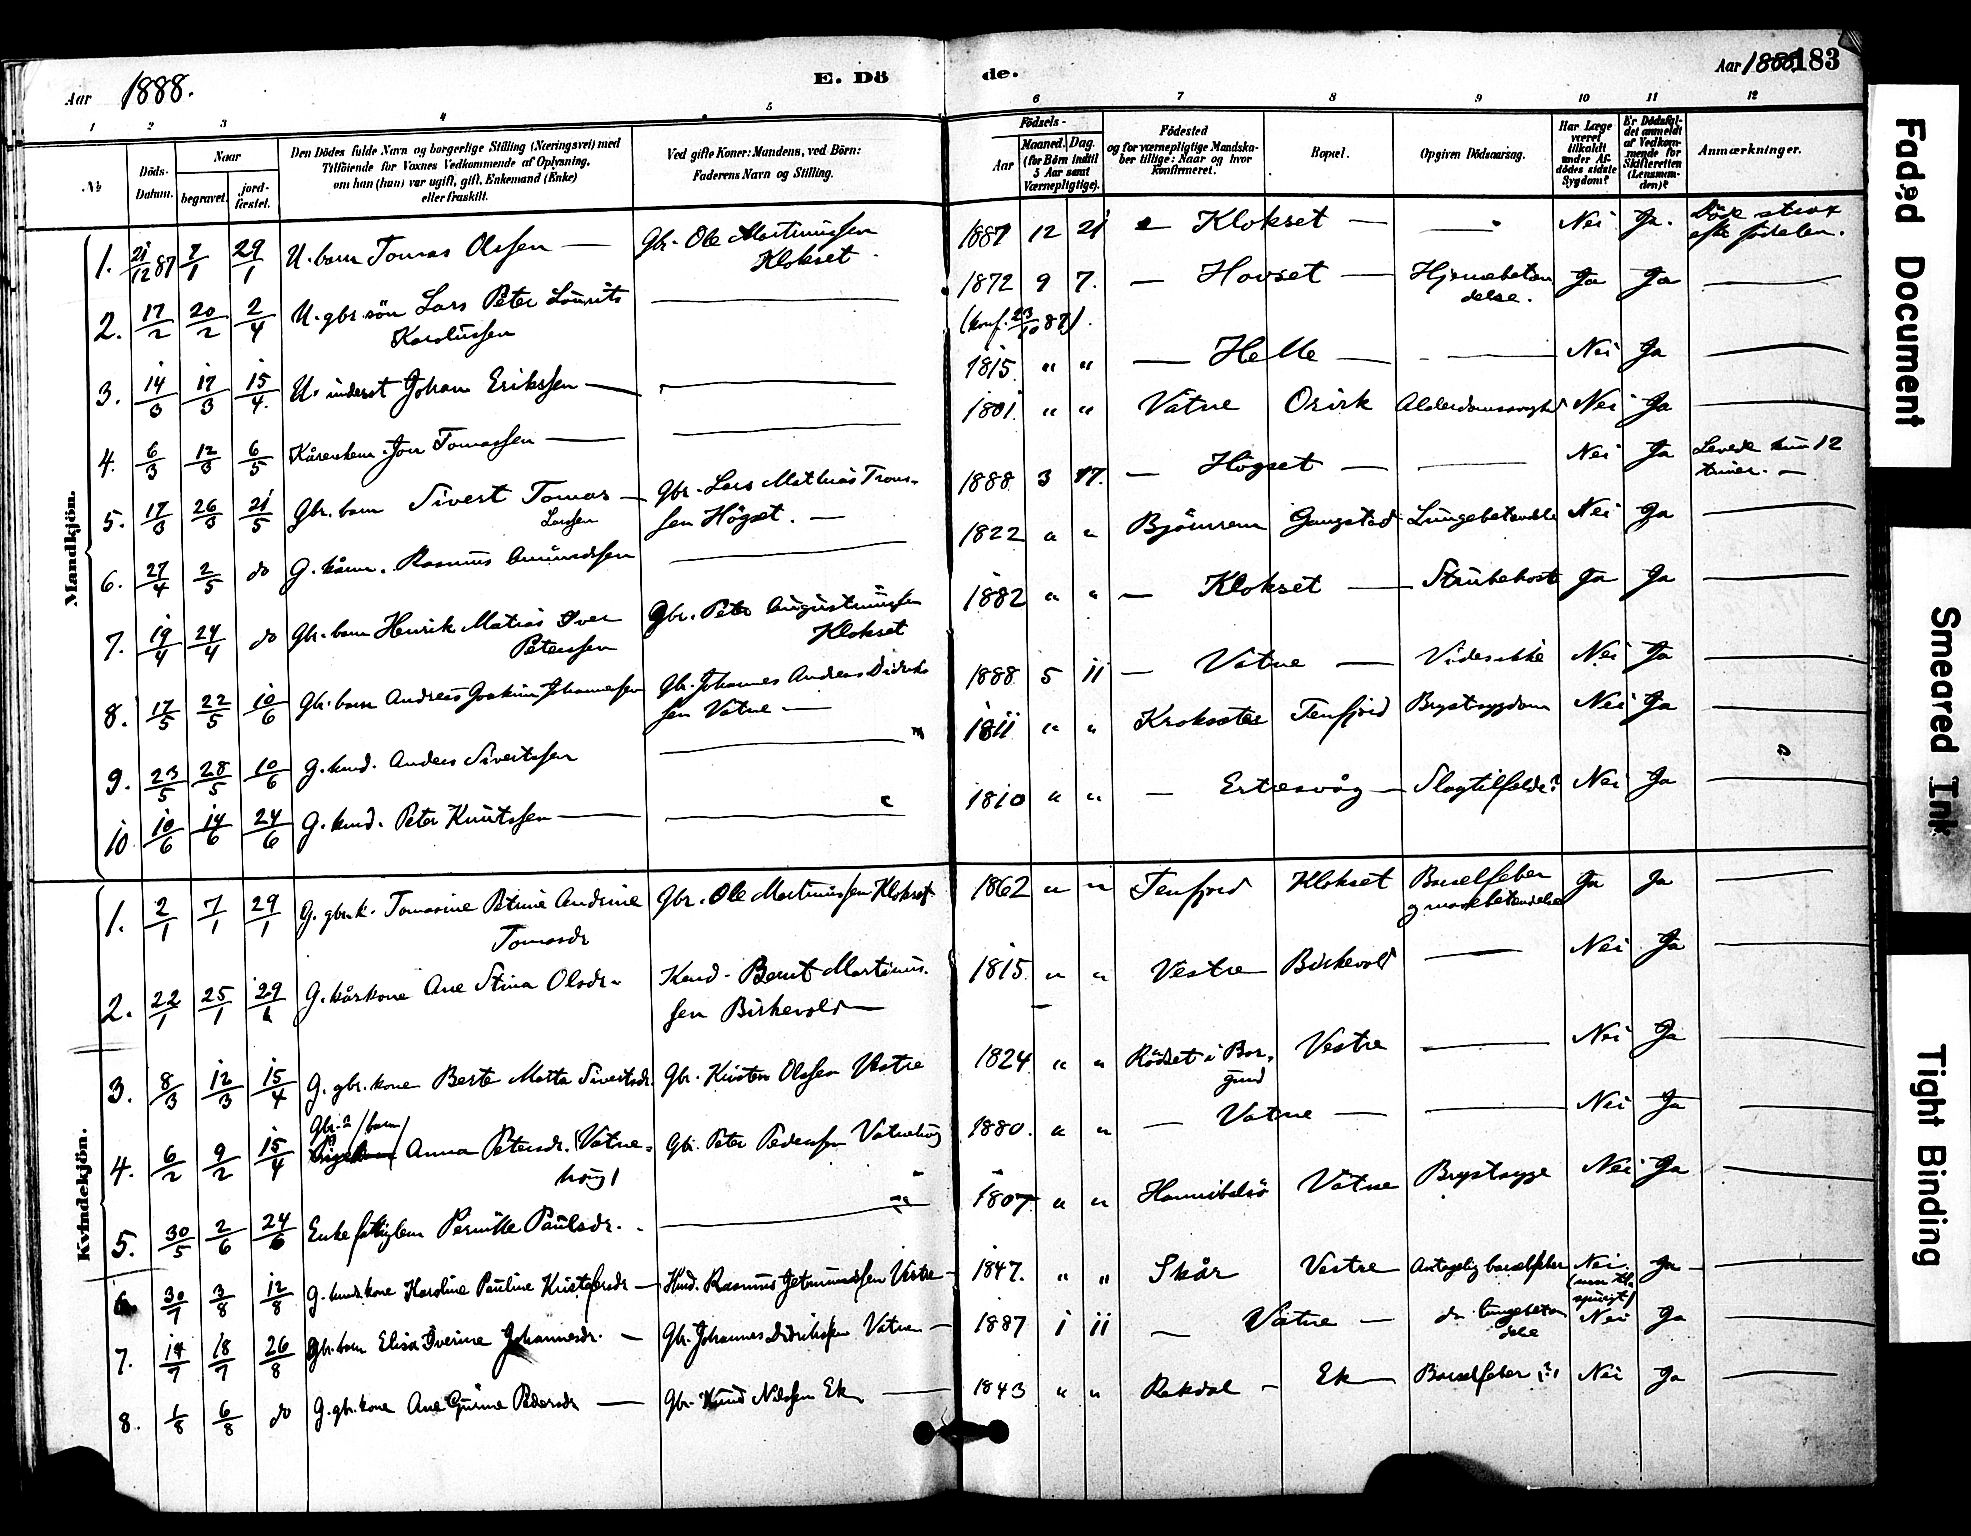 Aar 1888. E. Dö de. Aar 1888. 183
1 2 3 4 5 6 7 8 9 10 11 12
№ Döds-Datum. Naar begravet. jord-fæstet. Den Dödes fulde Navn og borgerlige Stilling (Næringsvei) med Tilföiende for Voxnes Vedkommende af Oplysning, om han (hun) var ugift, gift, Enkemand (Enke) eller fraskilt. Ved gifte Koner: Mandens, ved Börn: Faderens Navn og Stilling. Födsels- Aar Maaned. Dag. (for Börn indtil 5 Aar samt Værnepligtige). Födested og for værnepligtige Mandska-ber tillige: Naar og hvor konfirmeret. Bopæl. Opgiven Dödsaarsag. Har Læge været tilkaldt under Af-dödes sidste Sygdom? Er Dödsfal-det anmeldt af Vedkom-mende for Skifteretten (Lensman-den)? Anmærkninger.
Mandkjön.
1. 21/12 87 7/1 29/1 U. barn Tomas Olssen — Gbr. Ole Martinussen Klokset. 1887 12 21 — Klokset — — Nei Ja. Döde strax efter födselen.
2. 17/2 20/2 2/4 U. gbr. sön Lars Peter Lauritz Karolussen — 1872 9 7. (konf. 23/10 87). — Hovset — Hjernebetæn delse. Ja Ja —
3. 14/3 17/3 15/4. U. inderst Johan Erikssen — — 1815 " " — Helle — — Nei Ja —
4. 6/3 12/3 6/5 Kårenkem. Jon Tomassen — — 1801 " " Vatne Osvik Alderdomssvaghed Nei Ja —
5. 17/3 26/3 21/5 Gbr. barn Sivert Tomas Larssen — Gbr. Lars Mathias Troms-sen Högset. — 1888 3 17. — Högset — — Nei Ja Levede kun 12 timer. —
6. 27/4 2/5 do G. kårm. Rasmus Amundssen — 1822 " " Björnrem Gangstad Lungebetændelse Nei Ja —
7. 19/4 24/4 do Gbr. barn Henrik Matias Iver Peterssen Gbr. Peter Augustinussen Klokset 1882 " " — Klokset — Strubehoste Ja Ja —
8. 17/5 22/5 10/6 Gbr. barn Andreas Joakim Johannessen Gbr. Johannes Andreas Didriks sen Vatne — 1888 5 11 — Vatne — Vides ikke Nei Ja —
9. 23/5 28/5 10/6 G. kmd. Anders Sivertssen — 1811 " " Kroksæter Tenfjord Brystsygdom Nei Ja —
10 10/6 14/6 24/6 G. kmd. Peter Knutssen — — 1810 " " — Ertesvåg — Slagtilfælde? Nei Ja —
Kvindekjön.
1. 2/1 7/1 29/1 G. gbr. k. Tomasine Petrine Andrine Tomasdr Gbr. Ole Martinussen Klokset 1862 " " Tenfjord Klokset Barselfeber og mavebetændelse Ja Ja —
2. 22/1 25/1 29/1 G. kårkone Ane Stina Olsdr. Kmd. Bernt Martinus-sen Birkevold — 1815 " " Vestre Birkevold — Nei Ja —
3. 8/3 12/3 15/4 G. gbr. kone Berte Marta Sivertsdr. Gbr. Kirsten Olssen Vestre 1824 " " Rödset i Bor-gund Vestre — Nei Ja —
4. 6/2 9/2 15/4 Gbr.s (barn) Anna Petersdr. (Vatne-haug) Gbr. Peter Pederssen Vatnehaug 1880. " " — Vatne — — Nei Ja —
5. 30/5 2/6 24/6 Enke fattiglem Pernille Paulsdr. — 1807 " " Hannibalsö Vatne Brystsyge Nei Ja —
6 30/7 3/8 12/8 G. kmdskone Karoline Pauline Kristofersdr — Kmd. Rasmus Jetmundssen Vestre — 1847. " " Skår Vestre Antagelig barselfeber Nei. (men til-spurgt) Ja —
7. 14/7 18/7 26/8 Gbr. barn Elisa Iverine Johannesdr. — Gbr. Johannes Didrikssen Vatne — 1887 1 11 — Vatne — do lungebetæn delse Nei Ja —
8. 1/8 6/8 do G. gbr. kone Ane Gurine Pedersdr — Gbr. Knud Nilssen Ek — 1843 " " Rekdal — Ek — Barselfeber (?) Nei Ja —
Faded Document
Smeared Ink
Tight Binding